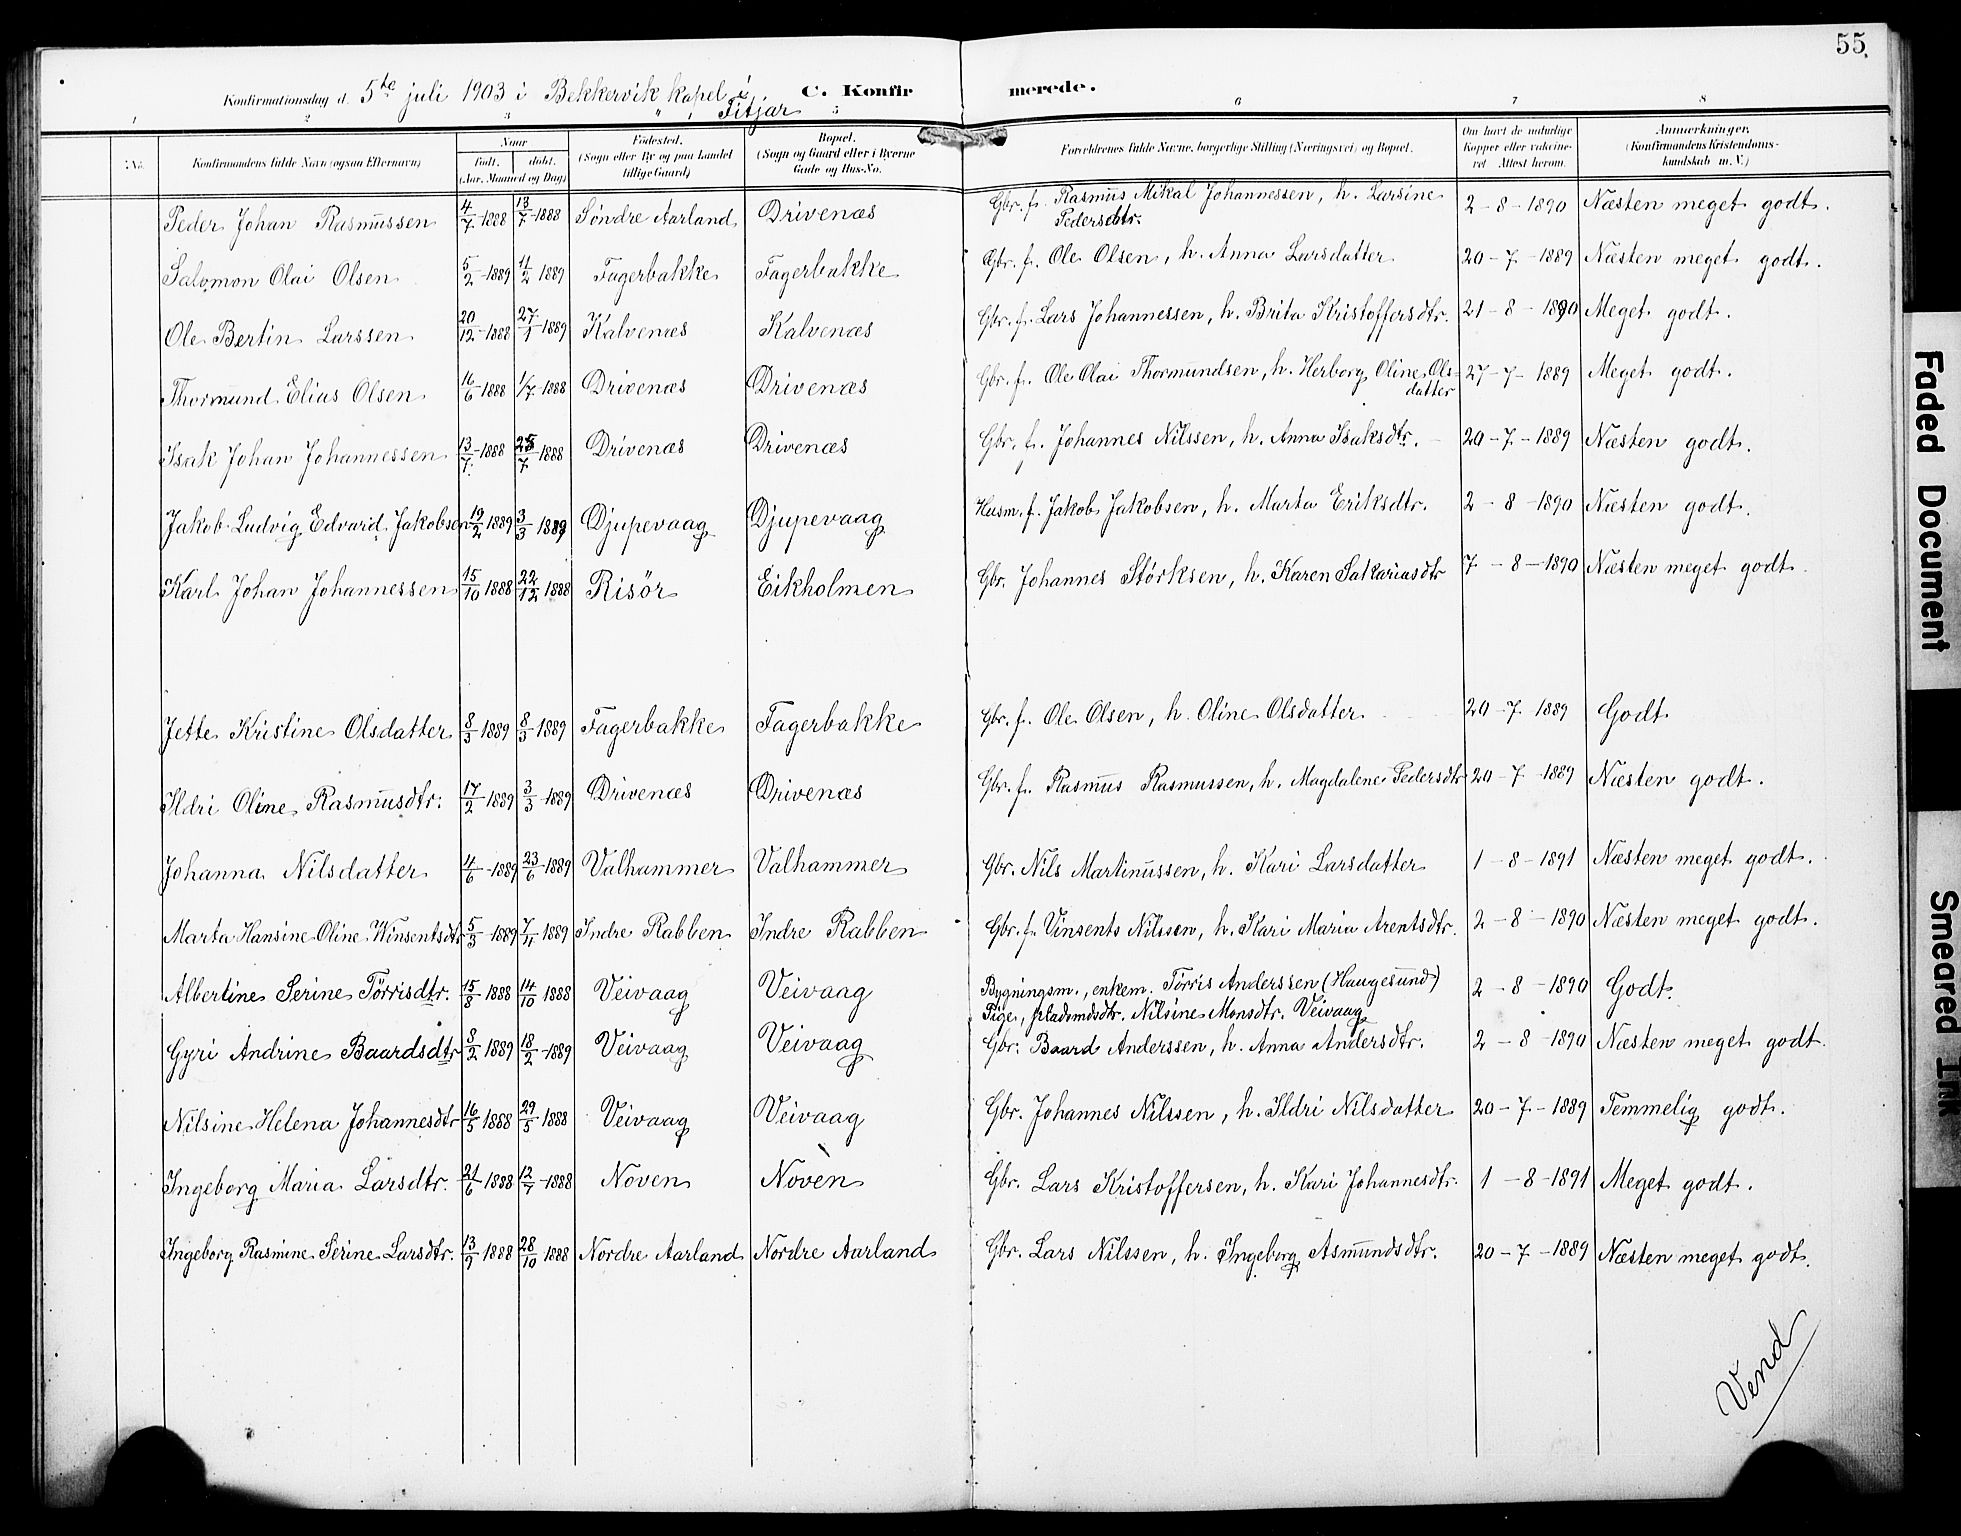 55.
Konfirmationsdag d. 5te juli 1903 i Bekkervik kapel i Fitjar C. Konfirmerede.
1 2 3 " 5 6 7 8
No. Konfirmandens fulde Navn (ogsaa Efternavn) Naar født. døbt. (Aar, Maaned og Dag) Fødested. (Sogn eller By og paa Landet tillige Gaard) Bopæl. (Sogn og Gaard eller i Byerne Gade og Hus-No. Forældrenes fulde Navne, borgerlige Stilling (Næringsvei) og Bopæl. Om havt de naturlige Kopper eller vaccineret Attest herom. Anmærkninger. (Konfirmandens Kristendomskundskab m. V.)
Peder Johan Rasmussen 4/7 1888 13/7 1888 Søndre Aarland Drivenæs Gbr. f. Rasmus Mikal Johannessen, h. Larsine Pedersdtr. 2-8-1890 Næsten meget godt.
Salomon Olai Olsen 5/2 1889 11/2 1889 Fagerbakke Fagerbakke Gbr. f. Ole Olsen, h. Anna Larsdatter 20-7-1889 Næsten meget godt.
Ole Bertin Larssen 20/12 1888 27/1 1889 Kalvenæs Kalvenæs Gbr. f. Lars Johannessen, h. Brita Kristoffersdtr. 21-8-1890 Meget godt.
Thormund Elias Olsen 16/6 1888 1/7 1888 Drivenæs Drivenæs Gbr. f. Ole Olai Thormundsen, h. Herborg Oline Olsdatter 27-7-1889 Meget godt.
Isak Johan Johannessen 13/7 1888 25/7 1888 Drivenæs Drivenæs Gbr. f. Johannes Nilssen, h. Anna Isaksdtr. 20-7-1889 Næsten godt.
Jakob Ludvig Edvard Jakobsen 19/2 1889 3/3 1889 Djupevaag Djupevaag Husm. f. Jakob Jakobsen, h. Marta Eriksdtr. 2-8-1890 Næsten godt.
Karl Johan Johannessen 15/10 1888 22/12 1888 Risör Eikholmen Gbr. Johannes Størksen, h. Karen Sakariasdtr 7-8-1890 Næsten meget godt.
Jette Kristine Olsdatter 8/3 1889 8/3 1889 Fagerbakke Fagerbakke Gbr. f. Ole Olsen, h. Oline Olsdatter 20-7 1889 Godt
Ildri Oline Rasmusdtr. 17/2 1889 3/3 1889 Drivenæs Drivenæs Gbr. f. Rasmus Rasmussen, h. Magdalene Pedersdtr 20-7-1889 Næsten godt.
Johanna Nilsdatter 4/6 1889 23/6 1889 Valhammer Valhammer Gbr. Nils Martinussen, h. Kari Larsdatter 1-8-1891 Næsten meget godt.
Marta Hansine Oline Winsentsdtr 5/3 1889 7/4 1889 Indre Rabben Indre Rabben Gbr. f. Vinsents Nilssen, h. Kari Maria Arentsdtr. 2-8-1890 Næsten meget godt.
Albertine Serine Tørrisdtr. 15/8 1888 14/10 1888 Veivaag Veivaag Bygningsm., enkem. Tørris Anderssen (Haugesund) Pige, Nilsine Monsdtr. Veivaag 2-8-1890 Godt.
Gyri Andrine Baardsdtr 3/2 1889 18/2 1889 Veivaag Veivaag Gbr. Baard Anderssen, h. Anna Andersdtr. 2-8-1890 Næsten meget godt.
Nilsine Helena Johannesdtr 16/5 1888 29/5 1888 Veivaag Veivaag Gbr. Johannes Nilssen, h. Ildri Nilsdatter 20-7-1889 Temmelig godt.
Ingeborg Maria Larsdtr. 21/6 1888 12/7 1888 Noven Noven Gbr. Lars Kristoffersen, h. Kari Johannesdtr. 1-8-1891 Meget godt.
Ingeborg Rasmine Serine Larsdtr. 13/9 1888 28/10 1888 Nordre Aarland Nordre Aarland Gbr. Lars Nilssen, h. Ingeborg Asmundsdtr. 20-7-1889 Næsten meget godt.
Vend
Faded Document
Smeared Ink